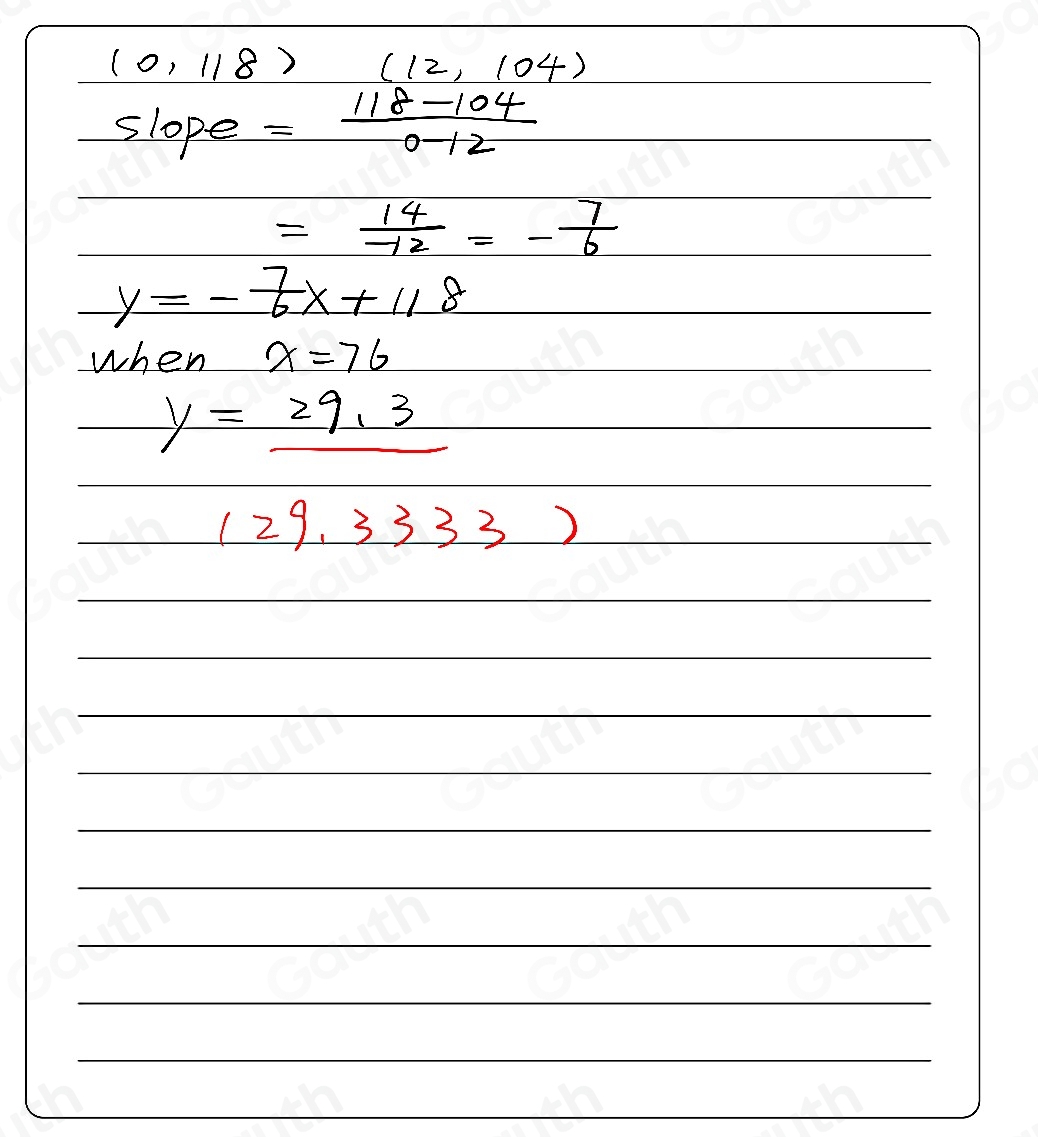 (0, 118) (12, 104)
slope = \frac{118-104}{0-12}
= \frac{14}{-12} = -\frac{7}{6}
y = -\frac{7}{6}x + 118
when x = 76
y = 29.3
(29.3333)
Gauth